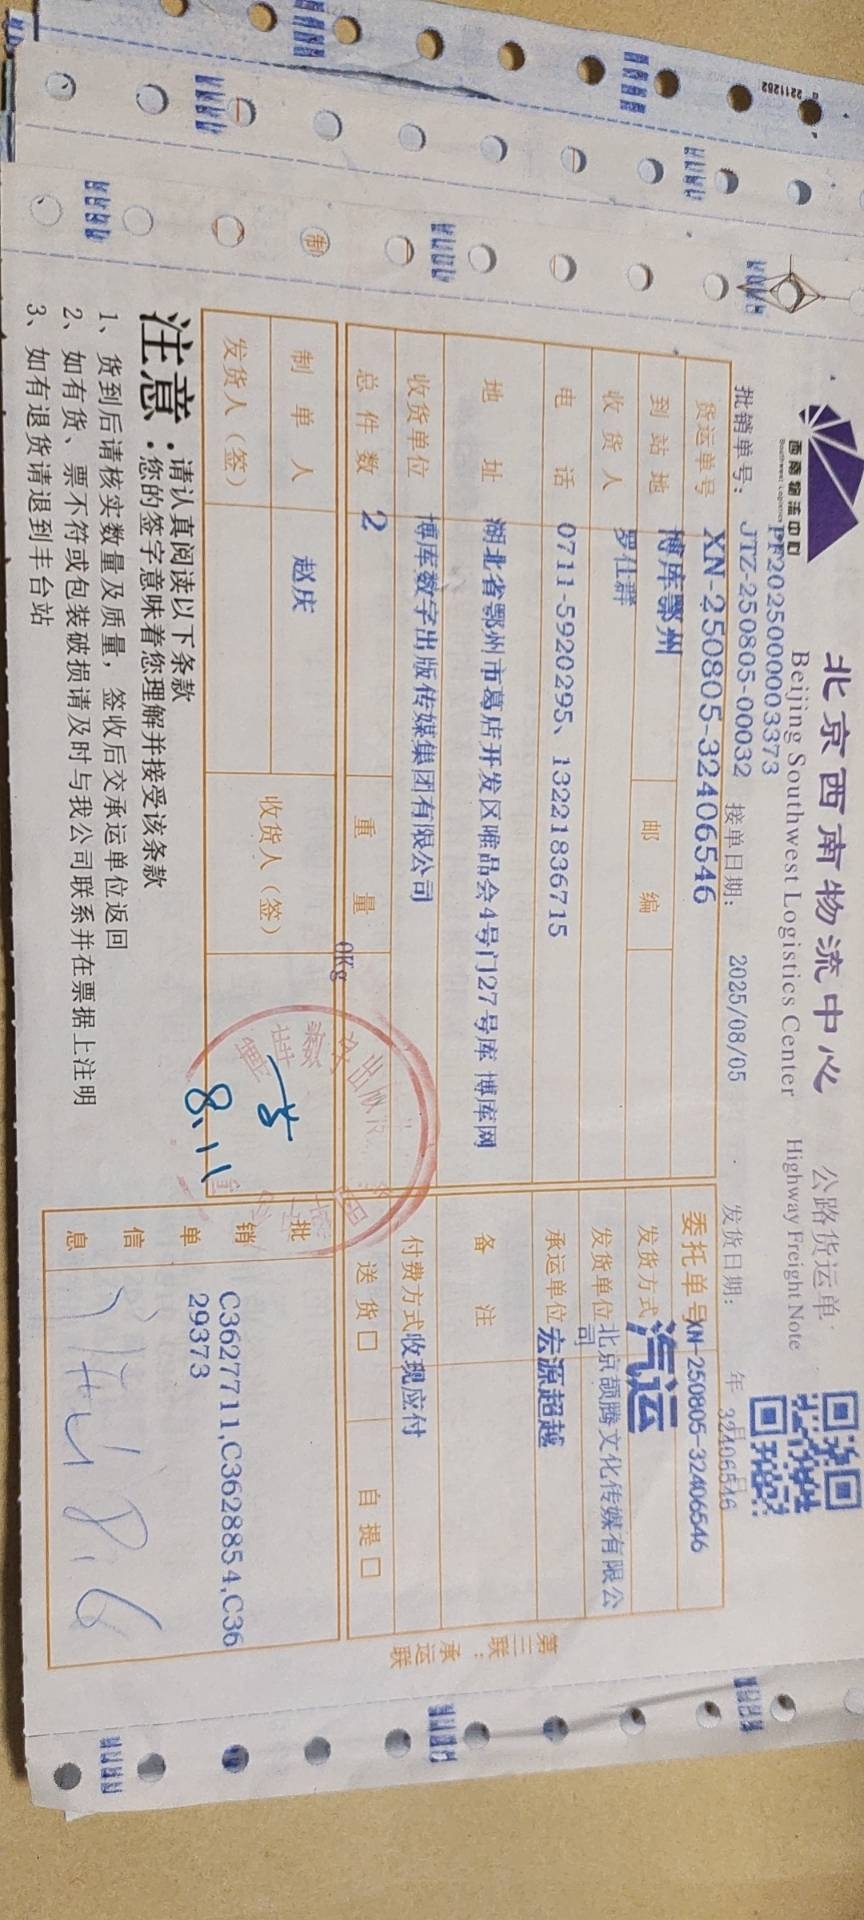 2211282
西南物流中心
Southwest Logistics
北京西南物流中心
公路货运单
Beijing Southwest Logistics Center
Highway Freight Note
PF202500003373
批销单号：JTZ-250805-00032 接单日期： 2025/08/05 发货日期： 年 月 日
32406546
货运单号 XN-250805-32406546 委托单号 XN-250805-32406546
到站地 博库鄂州 邮编 发货方式 汽运
收货人 罗仕群 发货单位 北京颉腾文化传媒有限公司
电话 0711-5920295、13221836715 承运单位 宏源超越
地址 湖北省鄂州市葛店开发区唯品会4号门27号库 博库网 备注
收货单位 博库数字出版传媒集团有限公司 付费方式 收现应付
总件数 2 重量 0Kg 送货□ 自提□
制单人 赵庆 收货人（签） 8.11
发货人（签）
批销单信息 C3627711,C3628854,C36
29373
8.6
第三联：承运联
注意：请认真阅读以下条款
您的签字意味着您理解并接受该条款
1、货到后请核实数量及质量，签收后交承运单位返回
2、如有货、票不符或包装破损请及时与我公司联系并在票据上注明
3、如有退货请退到丰台站